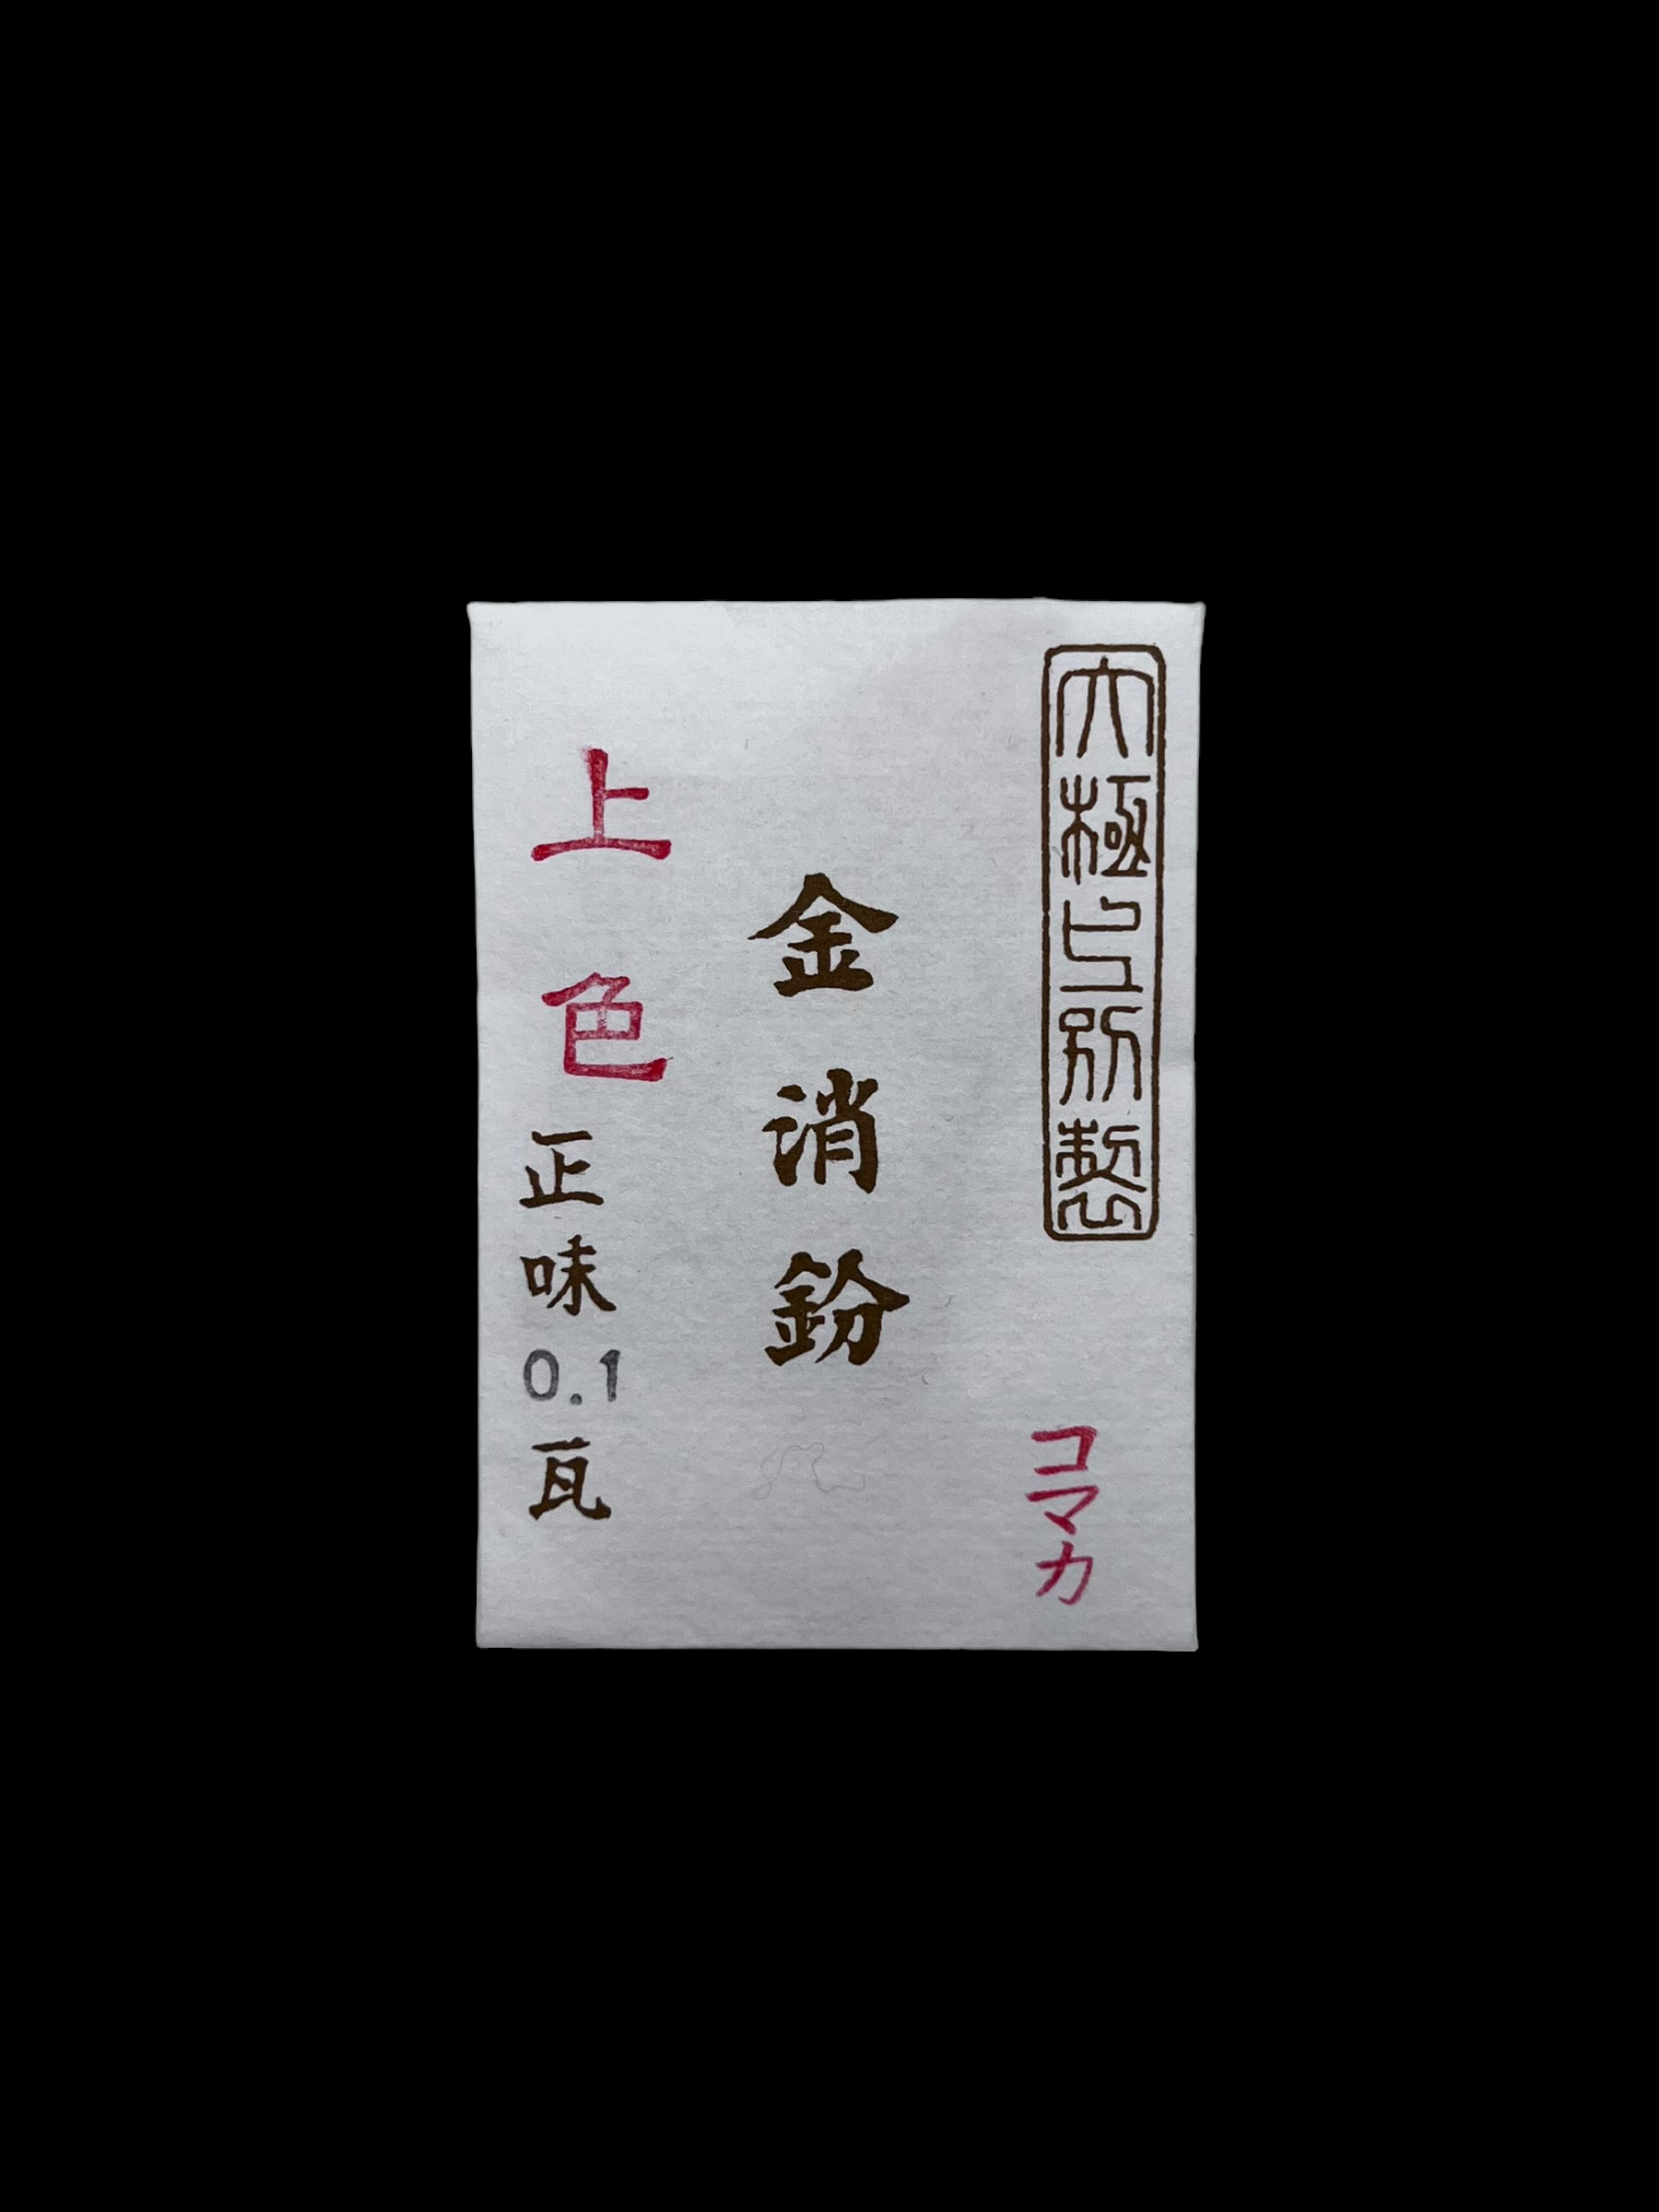 大極上別製
コマカ
金消鈖
上色
正味0.1瓦